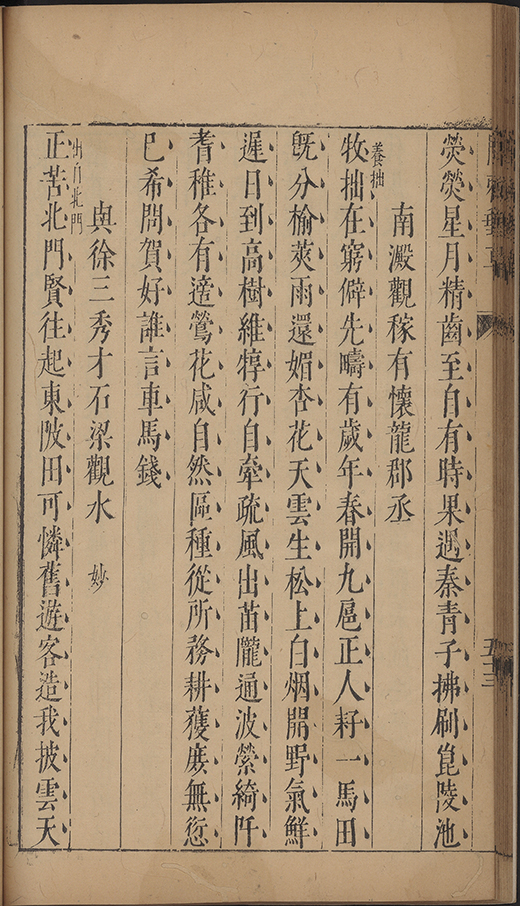 熒熒星月精齒至自有時果遇秦青子拂刷崑陵池
南澱觀稼有懷龍郡丞
養拙
牧拙在窮僻先疇有歲年春開九扈正人耔一馬田
旣分榆莢雨還媚杏花天雲生松上白烟開野氣鮮
遲日到高樹維犉行自牽疏風出苗隴通波縈綺阡
耆稚各有適鶯花咸自然區種從所務耕穫庶無愆
巳希問賀好誰言車馬錢
與徐三秀才石梁觀水 妙
出自北門
正苦北門賢往起東陂田可憐舊遊客造我披雲天
五十三